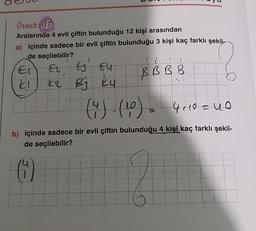 Örnek: 17
Aralarında 4 evli çiftin bulunduğu 12 kişi arasından
a) içinde sadece bir evli çiftin bulunduğu 3 kişi kaç farklı şekil-
de seçilebilir?
E1 E2 E3 E4 B B B B
K1 K2 K3 K4
(4 1) . (10 1) = 4.10 = 40
b) içinde sadece bir evli çiftin bulunduğu 4 kişi kaç farklı şekil-
de seçilebilir?
(4 1)